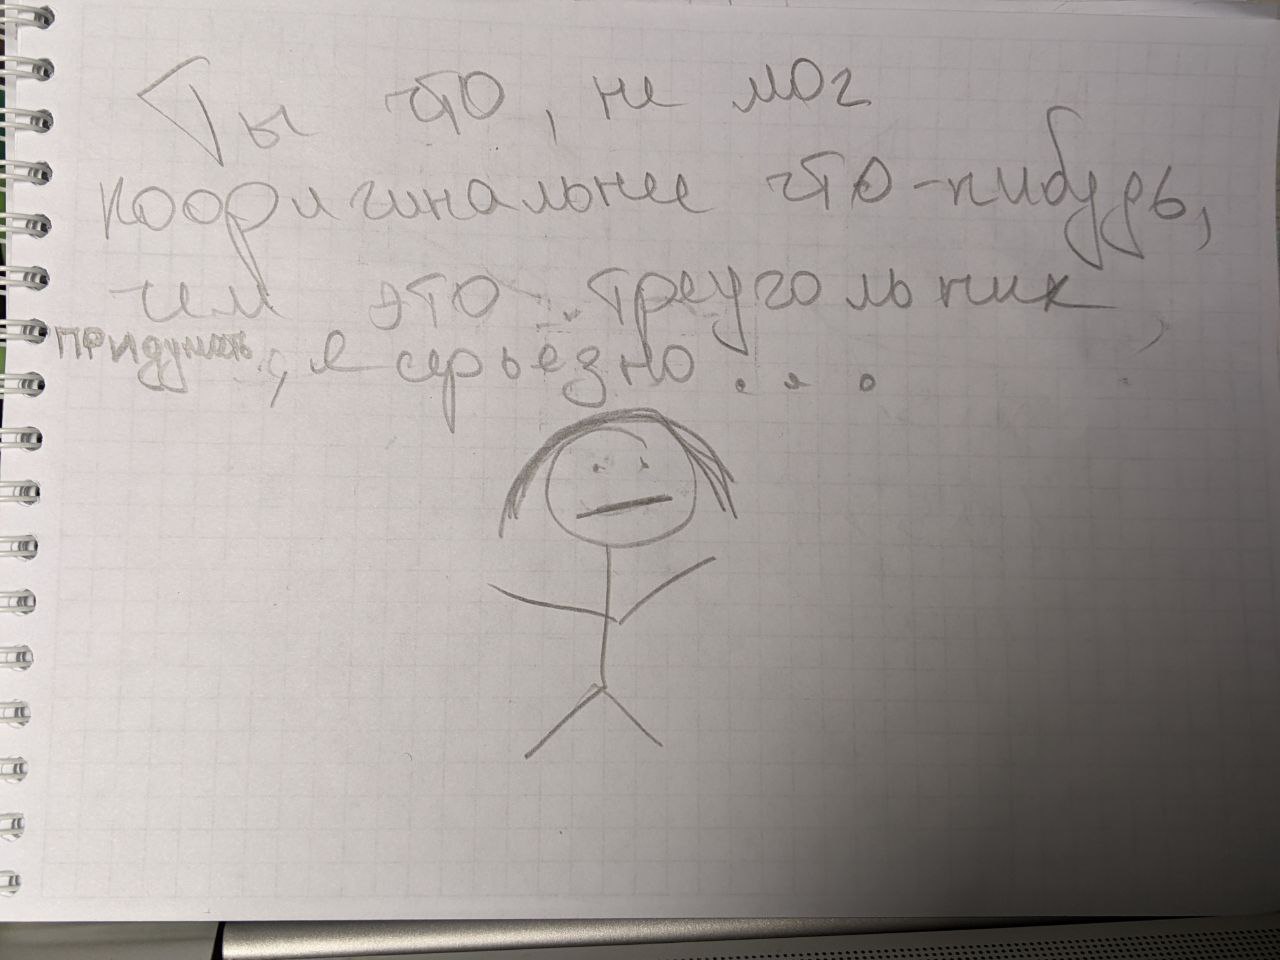 Ты что, не мог
кооригинальнее что-нибудь,
чем это.. треугольник,
придумать, я серьёзно...